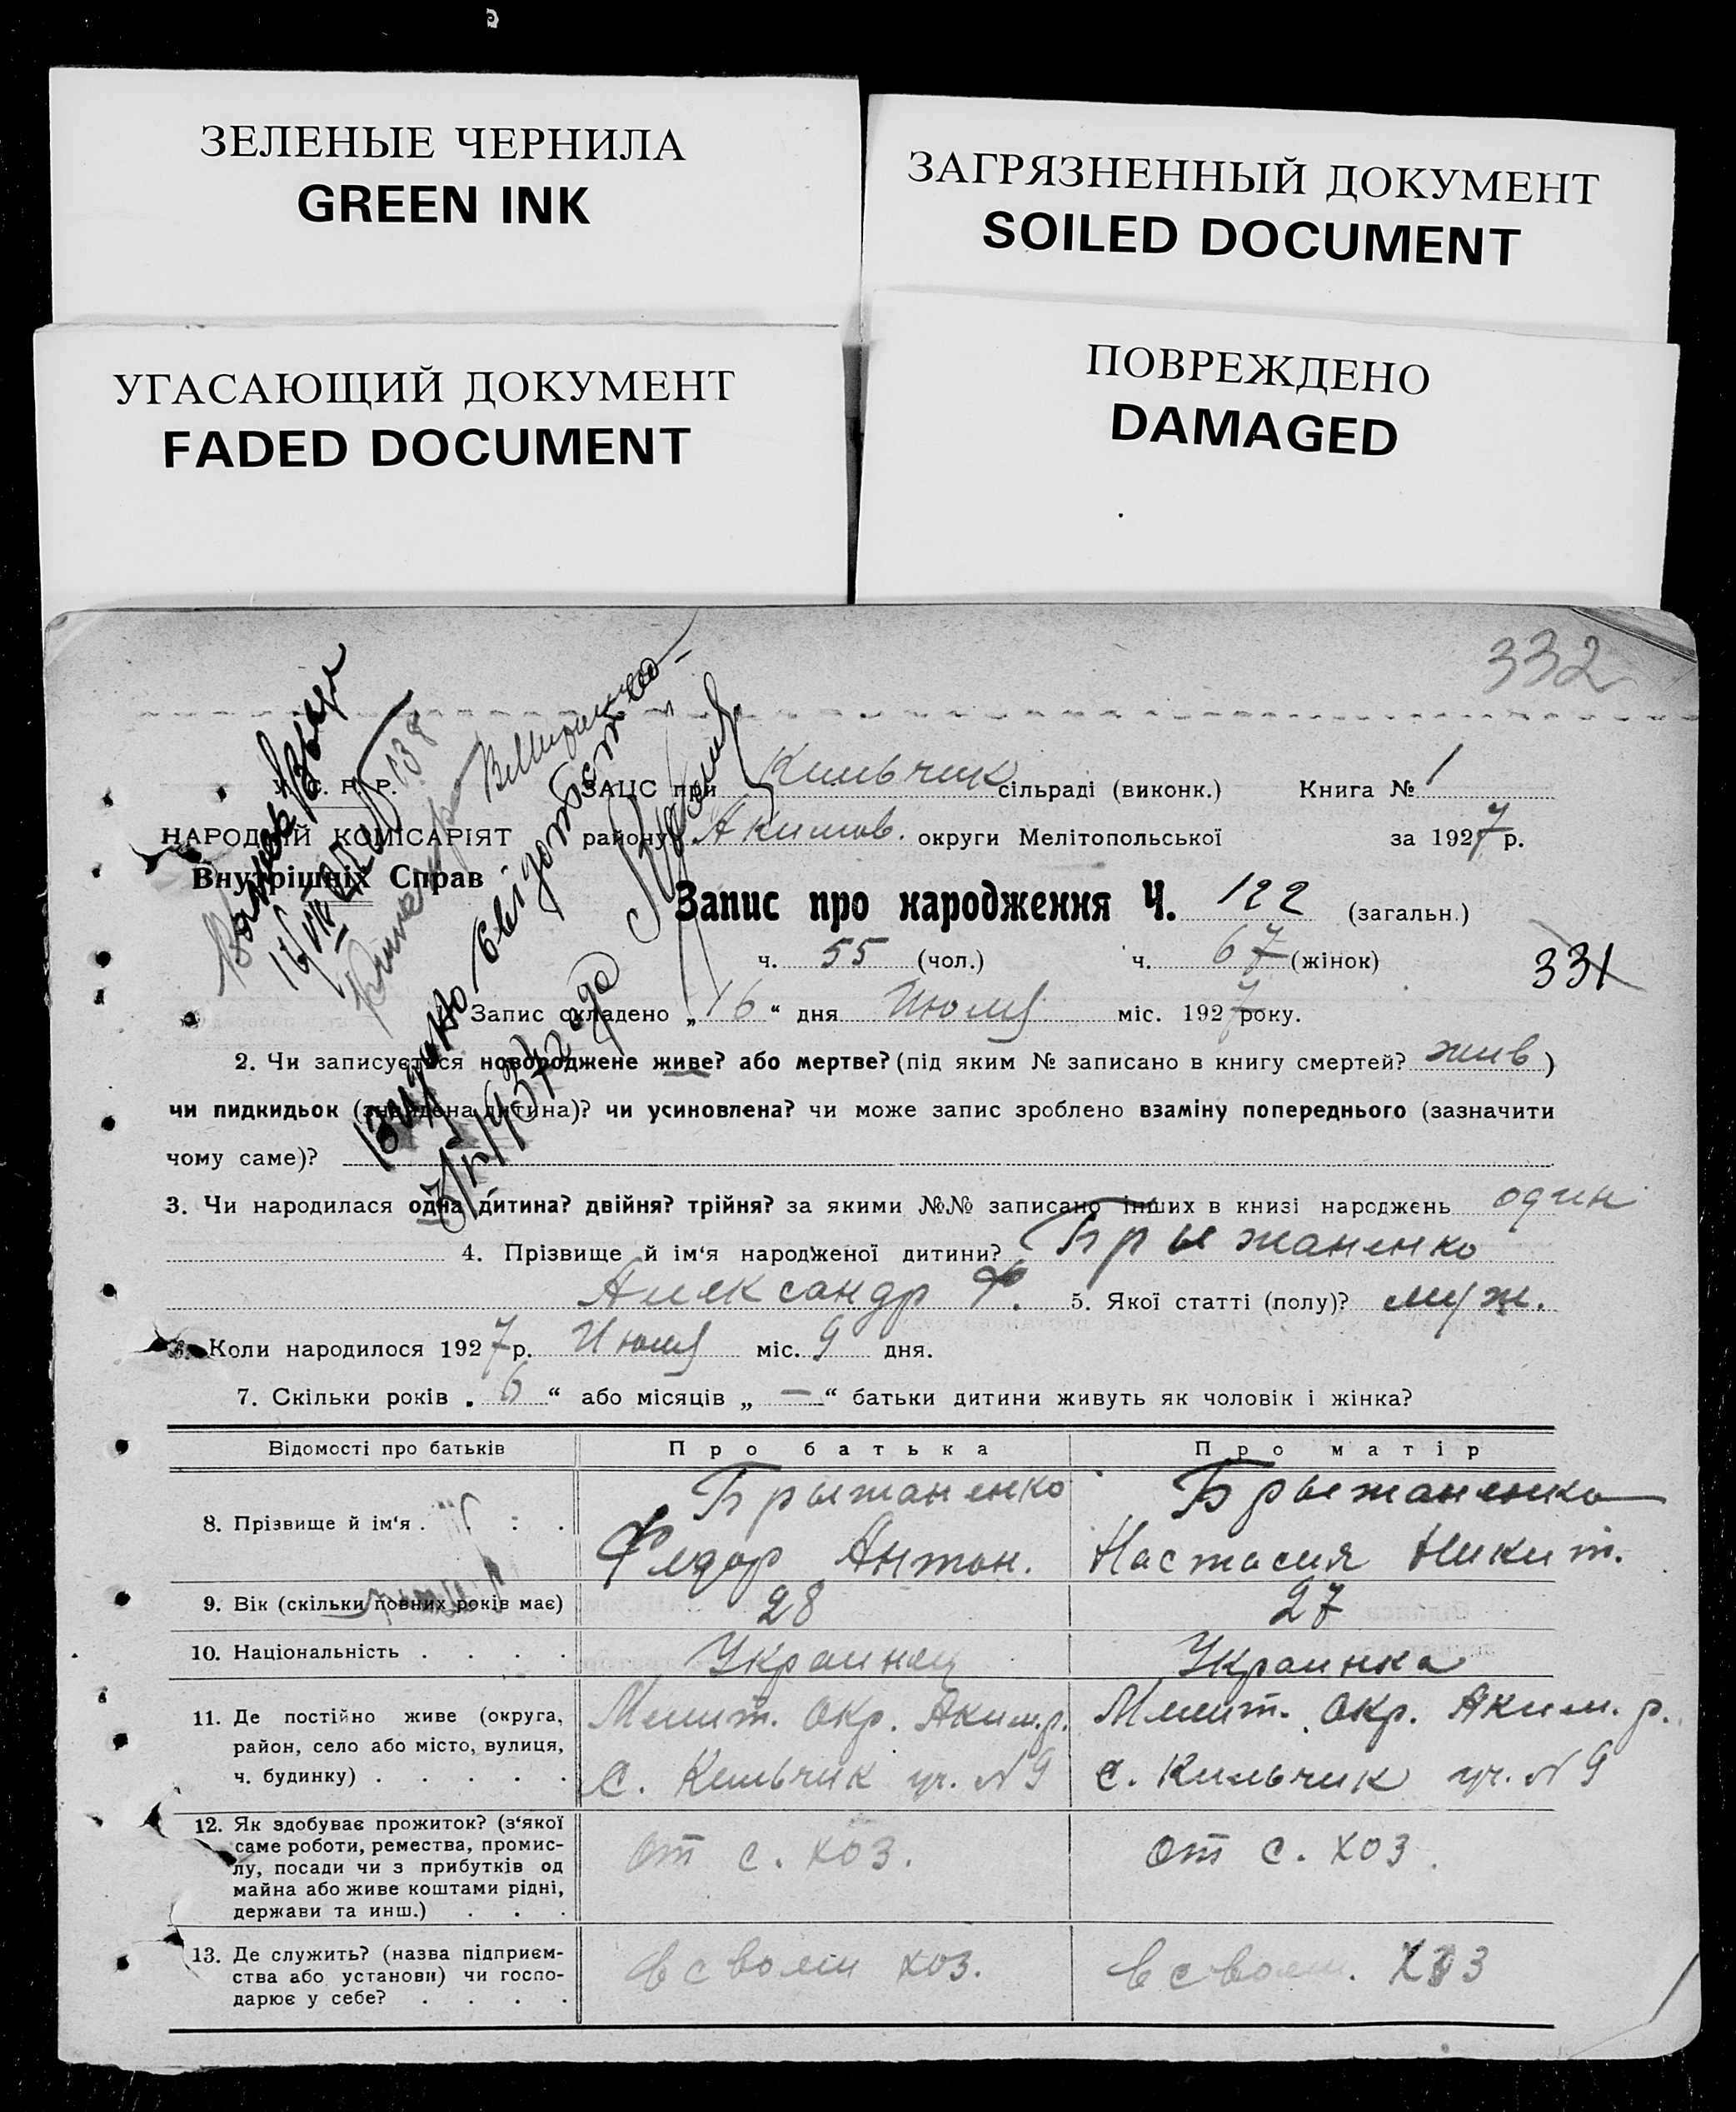 ЗЕЛЕНЫЕ ЧЕРНИЛА
GREEN INK
ЗАГРЯЗНЕННЫЙ ДОКУМЕНТ
SOILED DOCUMENT
УГАСАЮЩИЙ ДОКУМЕНТ
FADED DOCUMENT
ПОВРЕЖДЕНО
DAMAGED
332
У. С. Р. Р.
НАРОДНІЙ КОМІСАРІЯТ
Внутрішніх Справ
ЗАЦС при Кильчик сільраді (виконк.) Книга № 1
району Акимов. округи Мелітопольської за 1927 р.
Запис про народження Ч. 122 (загальн.)
ч. 55 (чол.) ч. 67 (жінок)
331
Запис складено „16“ дня Июля міс. 1927 року.
2. Чи записується новороджене живе? або мертве? (під яким № записано в книгу смертей? жив)
чи пидкидьок (знайдена дитина)? чи усиновлена? чи може запис зроблено взаміну попереднього (зазначити
чому саме)?
3. Чи народилася одна дитина? двійня? трійня? за якими №№ записано інших в книзі народжень один
4. Прізвище й ім‘я народженої дитини? Брыжаненко
Александр Ф. 5. Якої статті (полу)? муж.
6. Коли народилося 1927 р. Июля міс. 9 дня.
7. Скільки років „6“ або місяців „—“ батьки дитини живуть як чоловік і жінка?
Відомості про батьків Про батька Про матір
8. Прізвище й ім‘я . Брыжаненко Федор Антон. Брыжаненко Настасия Никит.
9. Вік (скільки повних років має) 28 27
10. Національність . . . . Украинец Украинка
11. Де постійно живе (округа,
район, село або місто, вулиця,
ч. будинку) . . . . .
Мелит. Окр. Аким. р.
с. Кильчик уч. N 9
Мелит. Окр. Аким. р.
с. Кильчик уч. N 9
12. Як здобуває прожиток? (з‘якої
саме роботи, ремества, промис-
лу, посади чи з прибутків од
майна або живе коштами рідні,
держави та инш.) . . .
от с. хоз.
от с. хоз.
13. Де служить? (назва підприєм-
ства або установи) чи госпо-
дарює у себе? . . . .
в своем хоз.
в своем. хоз